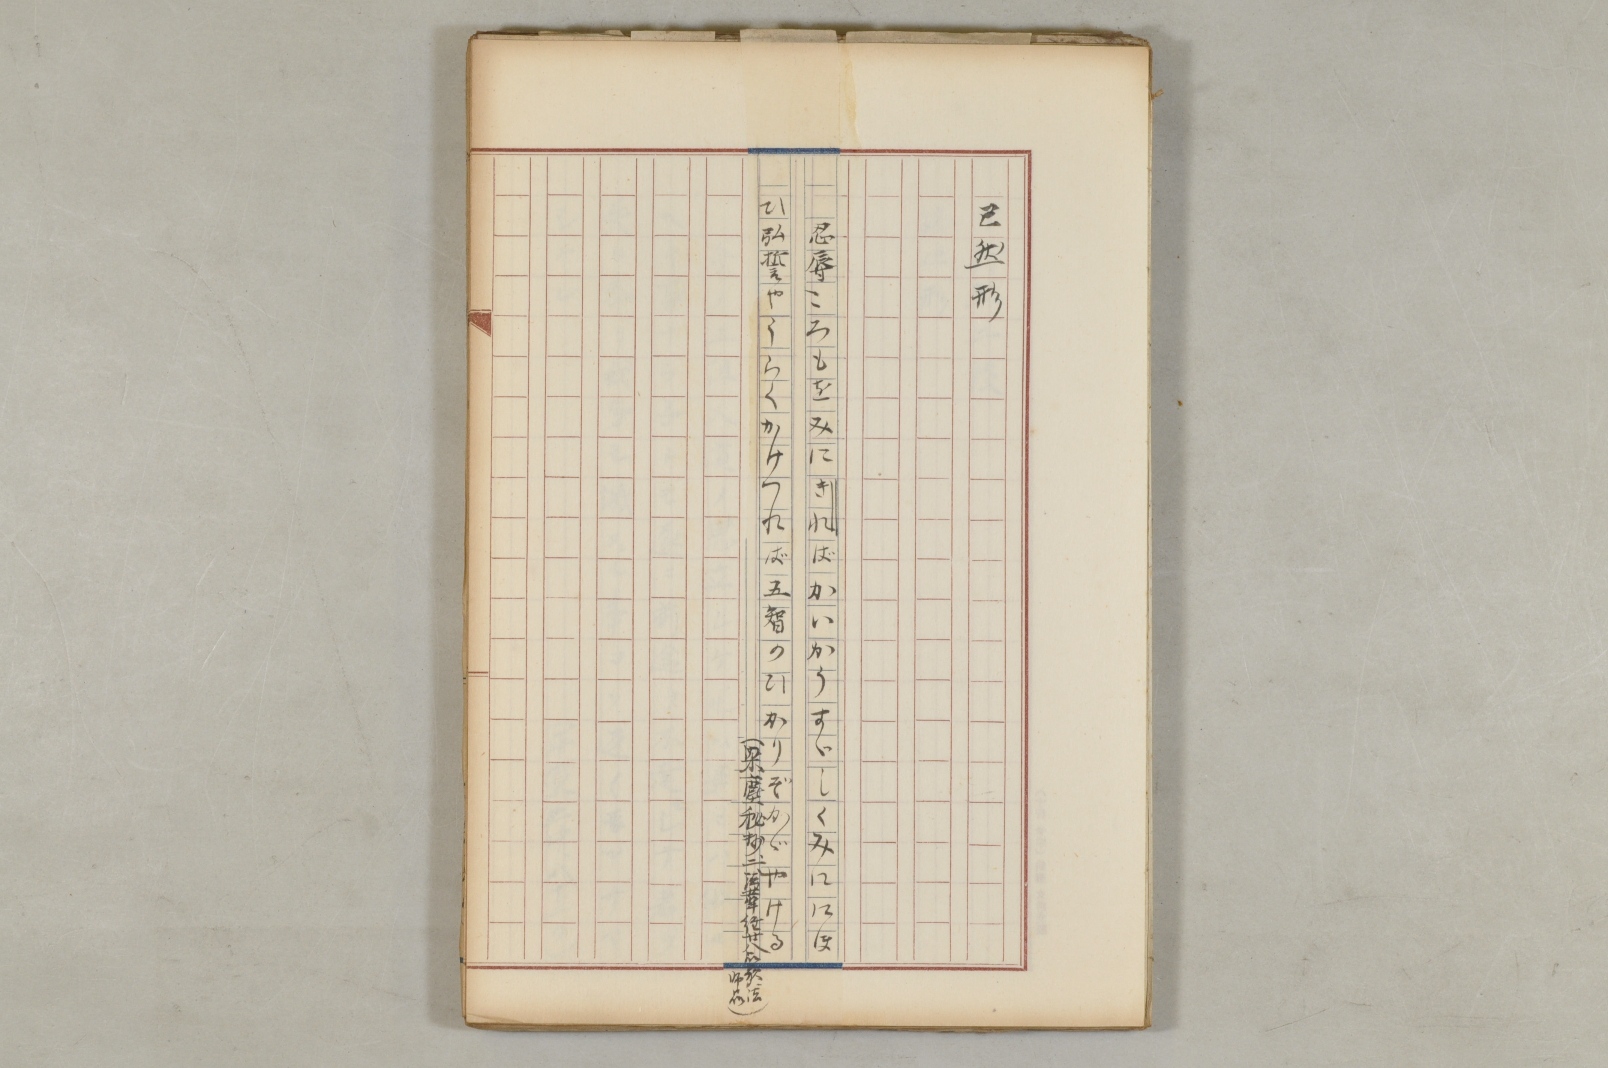 已然形
忍辱ころもをみにきればかいかうすゞしくみににほ
ひ弘誓やうらくかけつれば五智のひかりぞかゞやける
(梁塵秘抄二、法華経廿八品歌、法
師品)